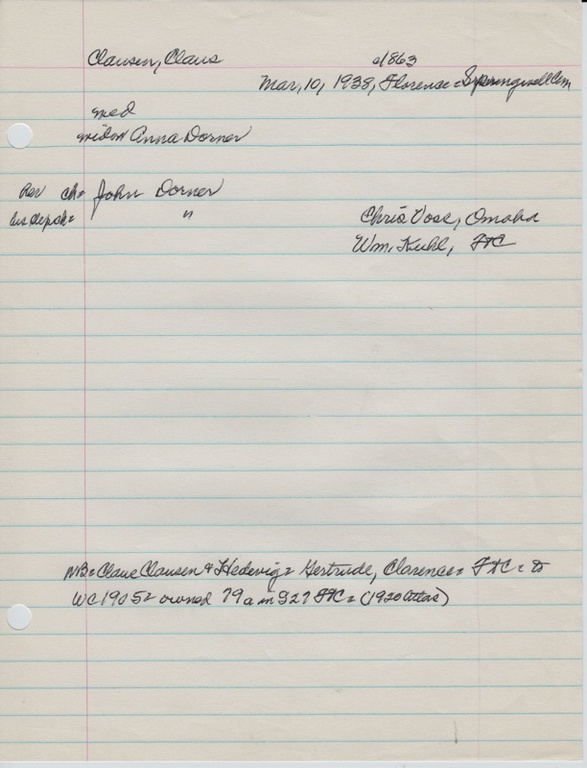 Clausen, Claus c/863
Mar, 10, 1938, Florence = Springwell Cem
med
widow Anna Dorner
Rev ch = John Dorner
"
Chris Voss, Omaha
Wm. Kuhl, FTC
NB = Claus Clausen & Hedevig = Gertrude, Clarence = FTC = to
WC 1905 = owned 79 a in S27 FTC = (1920 Atlas)